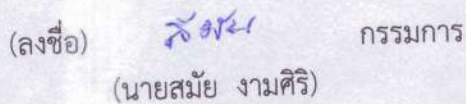 (ลงชื่อ) สมัย กรรมการ
(นายสมัย งามศิริ)